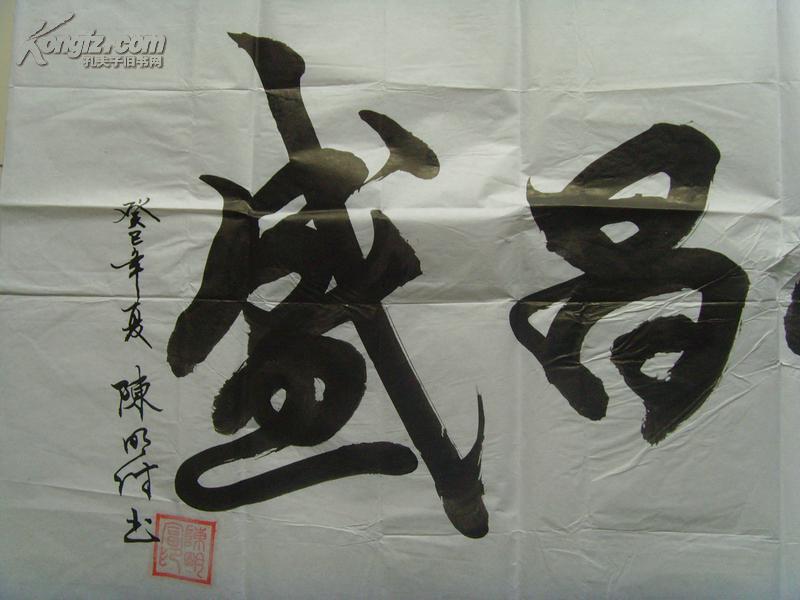 昌盛
癸巳年夏 陳明 书
Kongfz.com
孔夫子旧书网